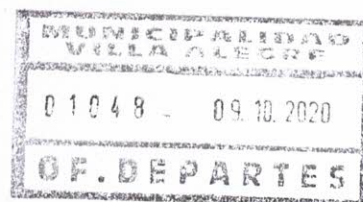 MUNICIPALIDAD
VILLA ALEGRE
01048 - 09.10.2020
OF. DEPARTES